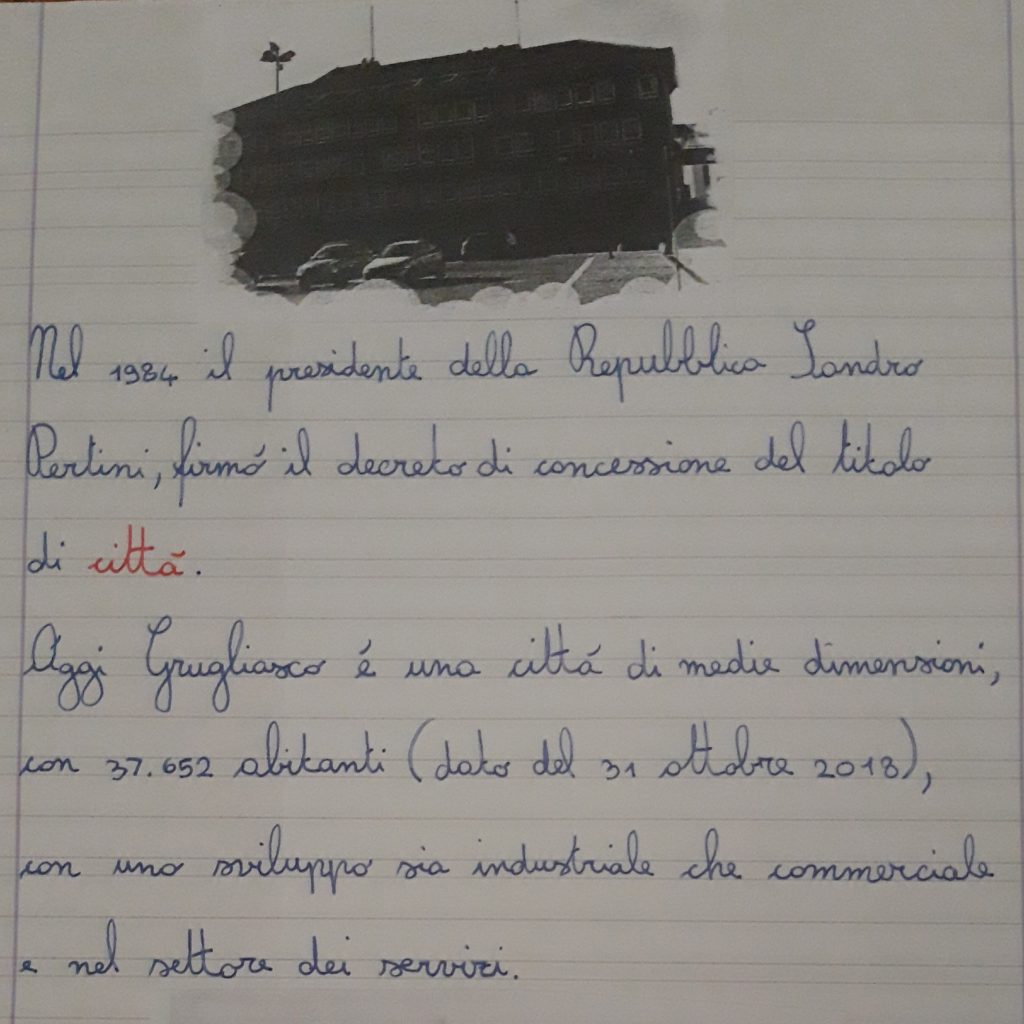 Nel 1984 il presidente della Repubblica Sandro
Pertini, firmó il decreto di concessione del titolo
di cittá.
Oggi Grugliasco é una cittá di medie dimensioni,
con 37.652 abitanti (dato del 31 ottobre 2018),
con uno sviluppo sia industriale che commerciale
e nel settore dei servizi.